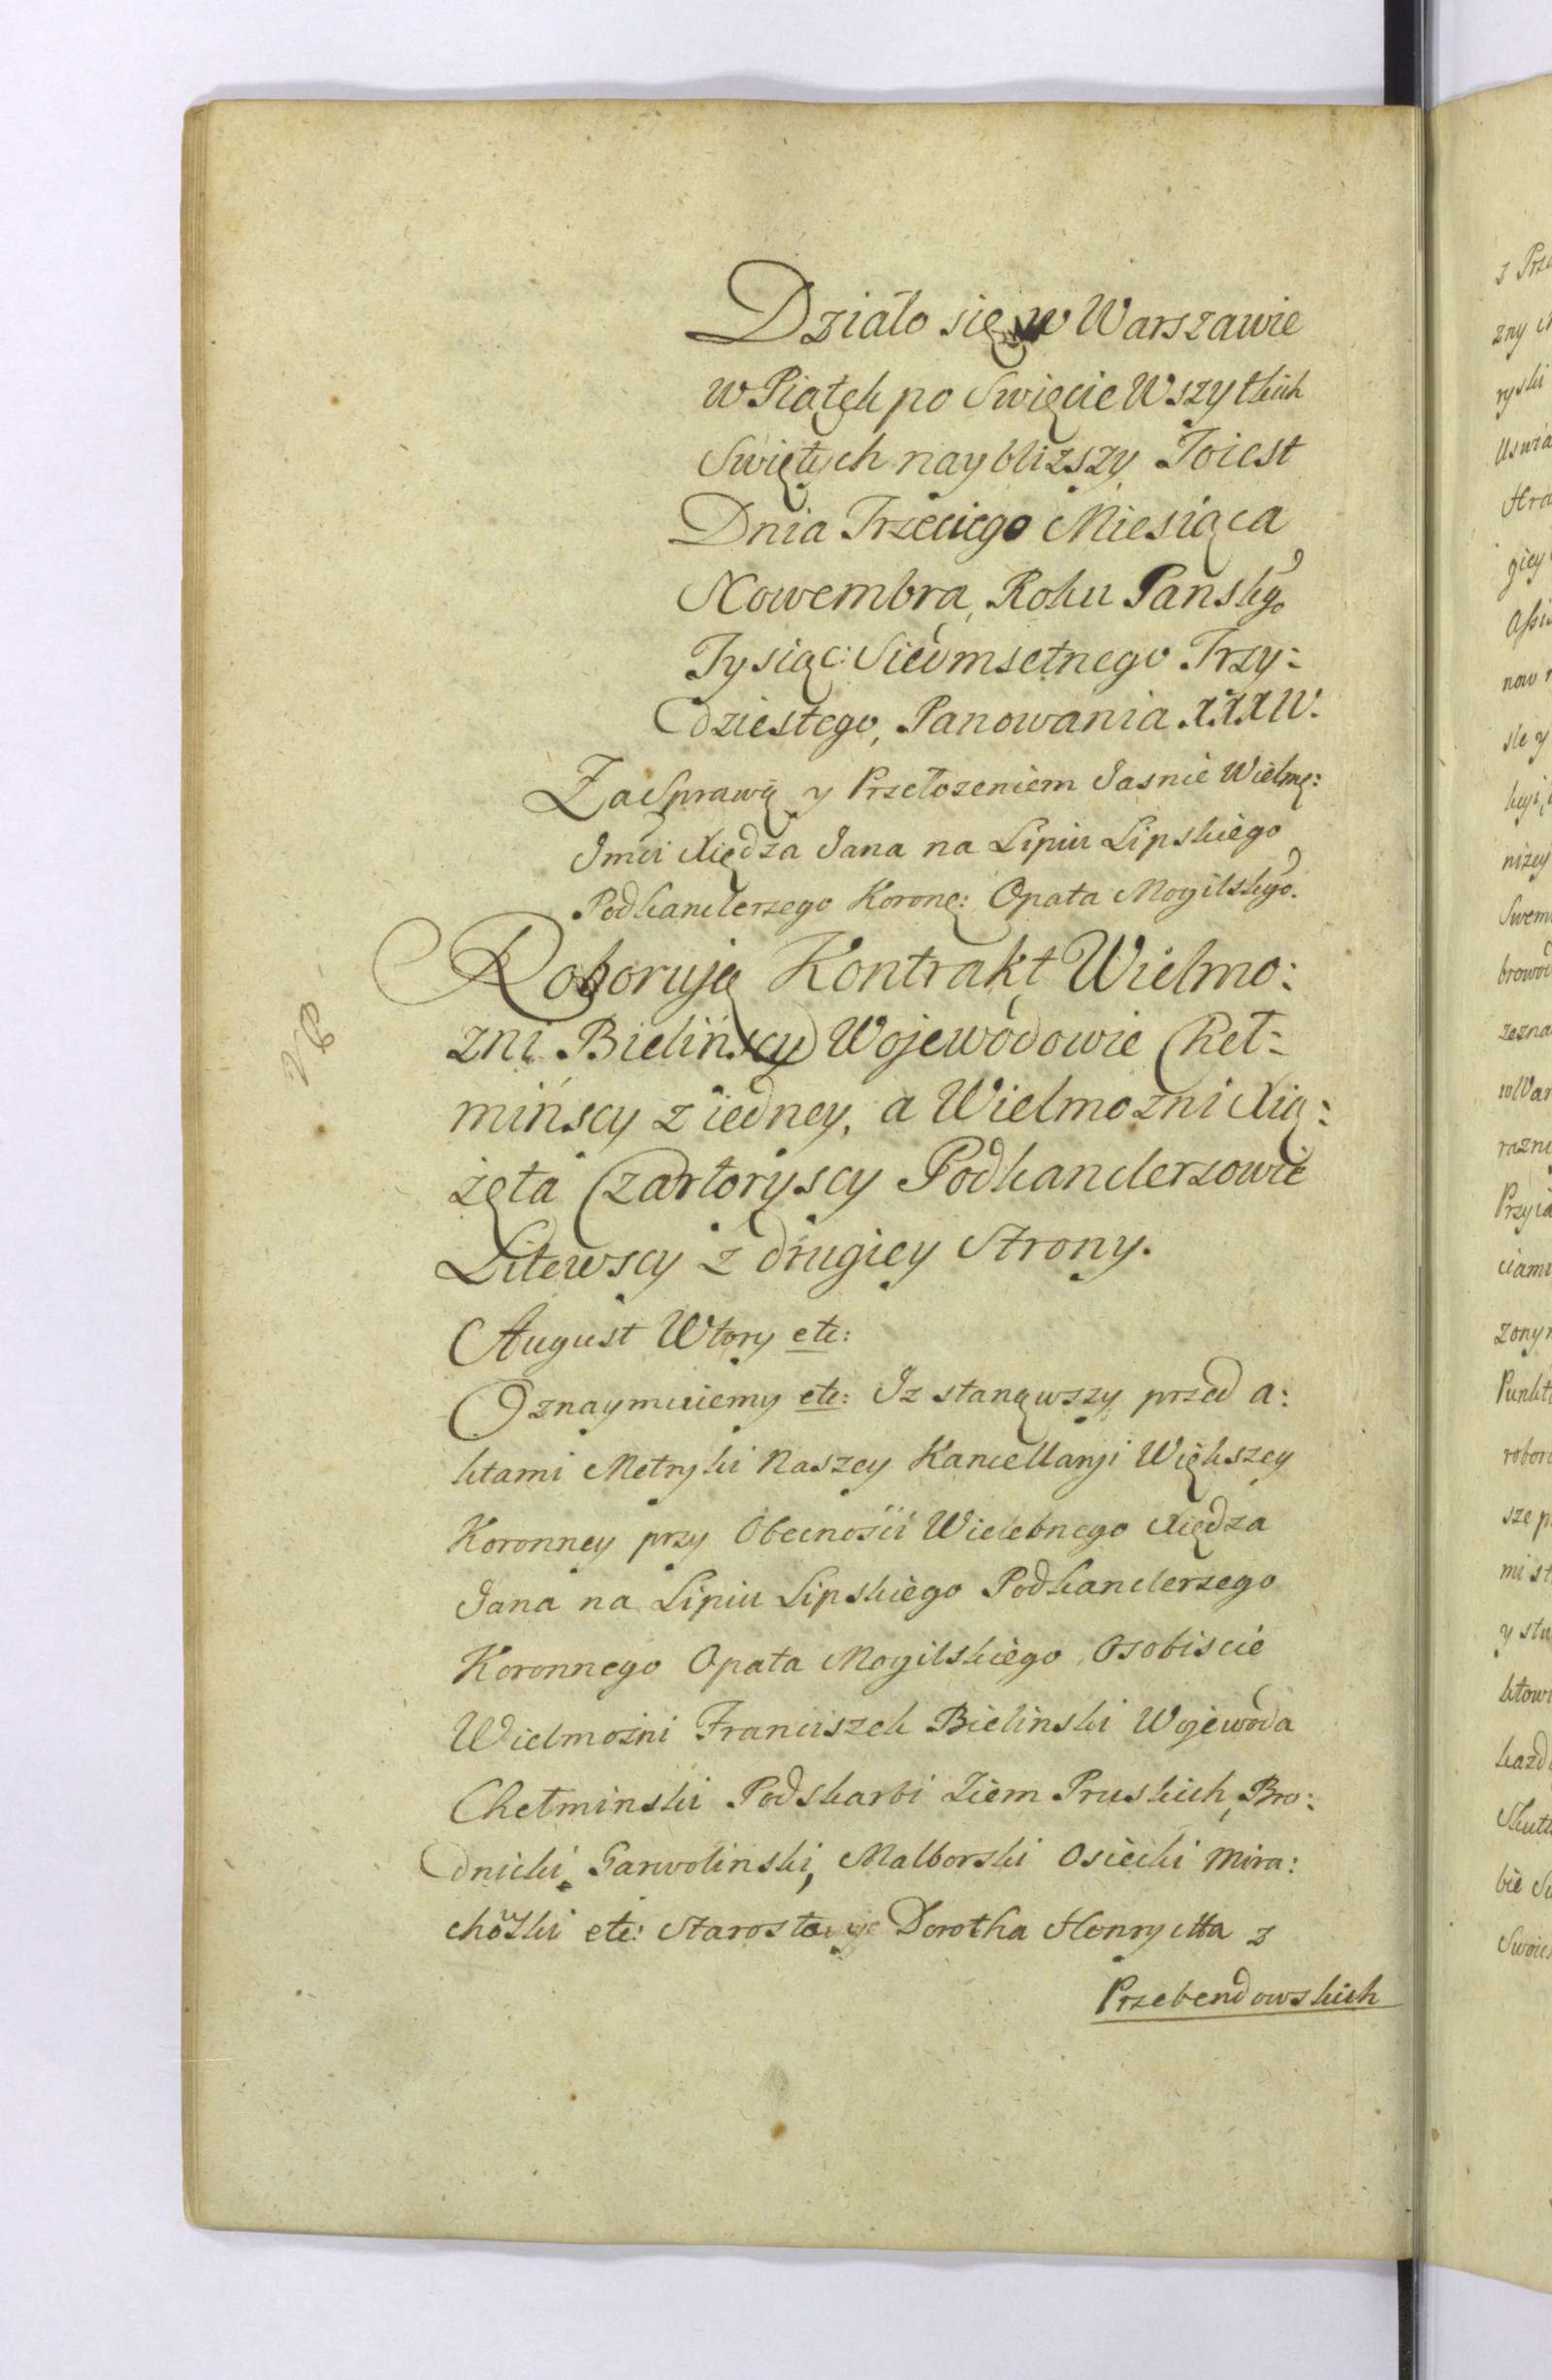 Działo się w Warszawie
w Piątek po Swięcie Wszytkich
Swiętych nayblizszy Toiest
Dnia Trzeciego Miesiąca
Nowembra, Roku Panskgo
Tysiąc: Siedmsetnego Trzy:
dziestego, Panowania XXXIV.
Za Sprawą y Przełozeniem Jasnie Wielmę:
Jmci Xiędza Jana na Lipiu Lipskiego
Podkanclerzego Koronę: Opata Mogilskgo.
Roboruią Kontrakt Wielmo:
zni Bielińscy Wojewodowie Cheł:
mińscy z iedney, a Wielmozni Xią:
żęta Czartoryscy Podkanclerzowie
Litewscy z drugiey Strony.
August Wtory etc:
Oznaymuiemy etc: Iz stanąwszy przed a:
ktami Metryki Naszey Kancellaryi Większey
Koronney przy Obecnosci Wielebnego Xiędza
Jana na Lipiu Lipskiego Podkanclerzego
Koronnego Opata Mogilskiego Osobiscie
Wielmożni Franciszek Bielinski Wojewoda
Chełminski Podskarbi Ziem Pruskich, Bro:
dnicki, Garwolinski, Malborski Osiecki Mira:
chowski etc: Starosta y Dorotha Henrycitta z
Przebendowskich
z Prze
zny
ryski
Uswia
giey
now
sie y
nizey
Swem
browo
zezna
w War
Przyia
ciami
zony
Punkt
robor
sze p
mi st
y stu
ktow
kazd
Skut
bie